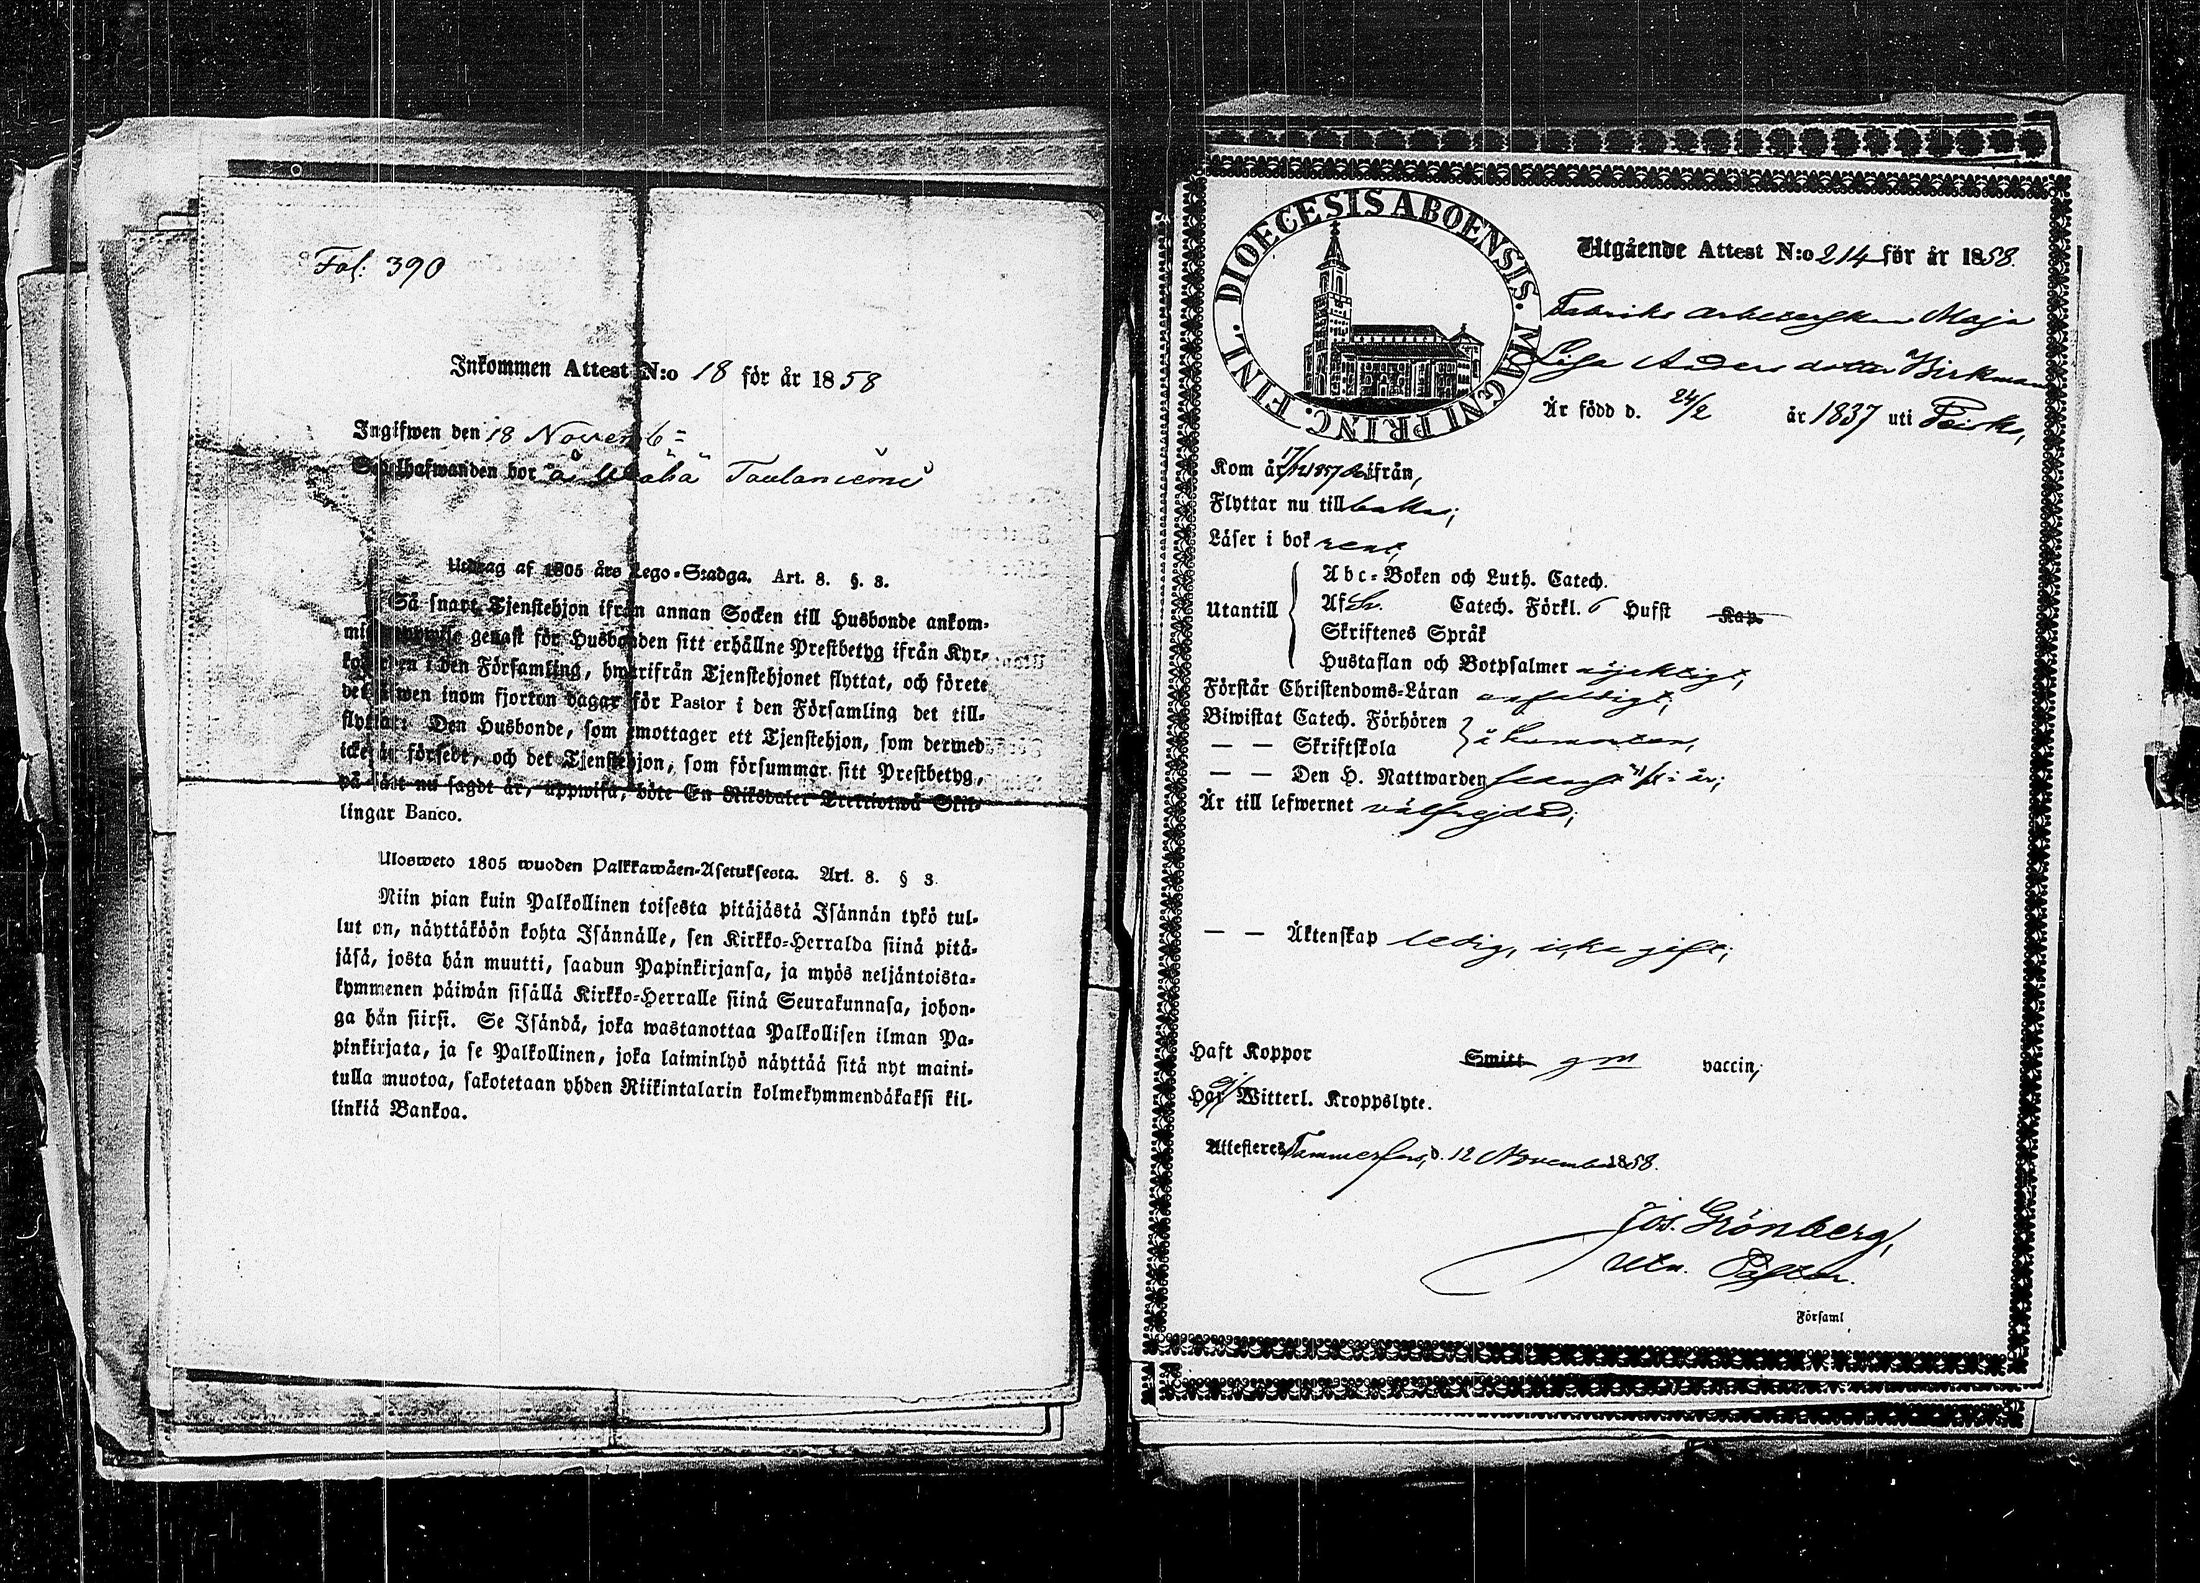 Fol: 390
Inkommen Attest N:o 18 för år 1858
Ingifwen den 18 Novemb=
Sedelhafwanden bor å Wähä Taulaniemi
Utdrag af 1805 års Lego-Stadga. Art. 8. §. 3.
Så snart Tjenstehjon ifrån annan Socken till Husbonde ankom-
genast för Husbonden sitt erhållne Prestbetyg ifrån Kyr-
i den Församling, hwarifrån Tjenstehjonet flyttat, och förete
det äwen inom fjorton dagar för Pastor i den Församling det till-
flyttat. Den Husbonde, som emottager ett Tjenstehjon, som dermed
icke är försedt, och det Tjenstehjon, som försummar sitt Prestbetyg,
på sätt nu sagdt är, uppwisa, böte En Riksdaler Trettiotwå Skil-
lingar Banco.
Ulosweto 1805 wuoden Palkkawäen-Asetuksesta. Art. 8. § 3.
Niin pian kuin Palkollinen toisesta pitäjästä Isännän tykö tul-
lut on, näyttäköön kohta Isännälle, sen Kirkko-Herralda siinä pitä-
jäsä, josta hän muutti, saadun Papinkirjansa, ja myös neljäntoista-
kymmenen päiwän sisällä Kirkko-Herralle siinä Seurakunnasa, johon-
ga hän siirsi. Se Isändä, joka wastanottaa Palkollisen ilman Pa-
pinkirjata, ja se Palkollinen, joka laiminlyö näyttää sitä nyt maini-
tulla muotoa, sakotetaan yhden Riikintalarin kolmekymmendäkaksi kil-
linkiä Bankoa.
DIOECESIS ABOENSIS. MAGNI PRINC. FINL.
Utgående Attest N:o 214 för år 1858.
Fabriks arbeterskan Maja
Lisa Andersdotter Birkman
Är född d. 24/2 år 1837 uti
Kom år 17/12 1857 ifrån,
Flyttar nu till baka;
Läser i bok rent,
Abc-Boken och Luth. Catech.
Utantill Af Sv. Catech. Förkl. 6 Hufst Kap.
Skriftenes Språk
Hustaflan och Botpsalmer ojektigt,
Förstår Christendoms-Läran enfaldigt;
Biwistat Catech. Förhören
— — Skriftskola
— — Den H. Nattwarden i år;
Är till lefwernet välfrejdad;
— — Äktenskap ledig, icke gift;
Haft Koppor Smitt gm vaccin;
Har ej Witterl. Kroppslyte.
Attesteres Tammerfors, d. 12 November 1858.
Jos. Grönberg,
Utn. Pastor.
Församl